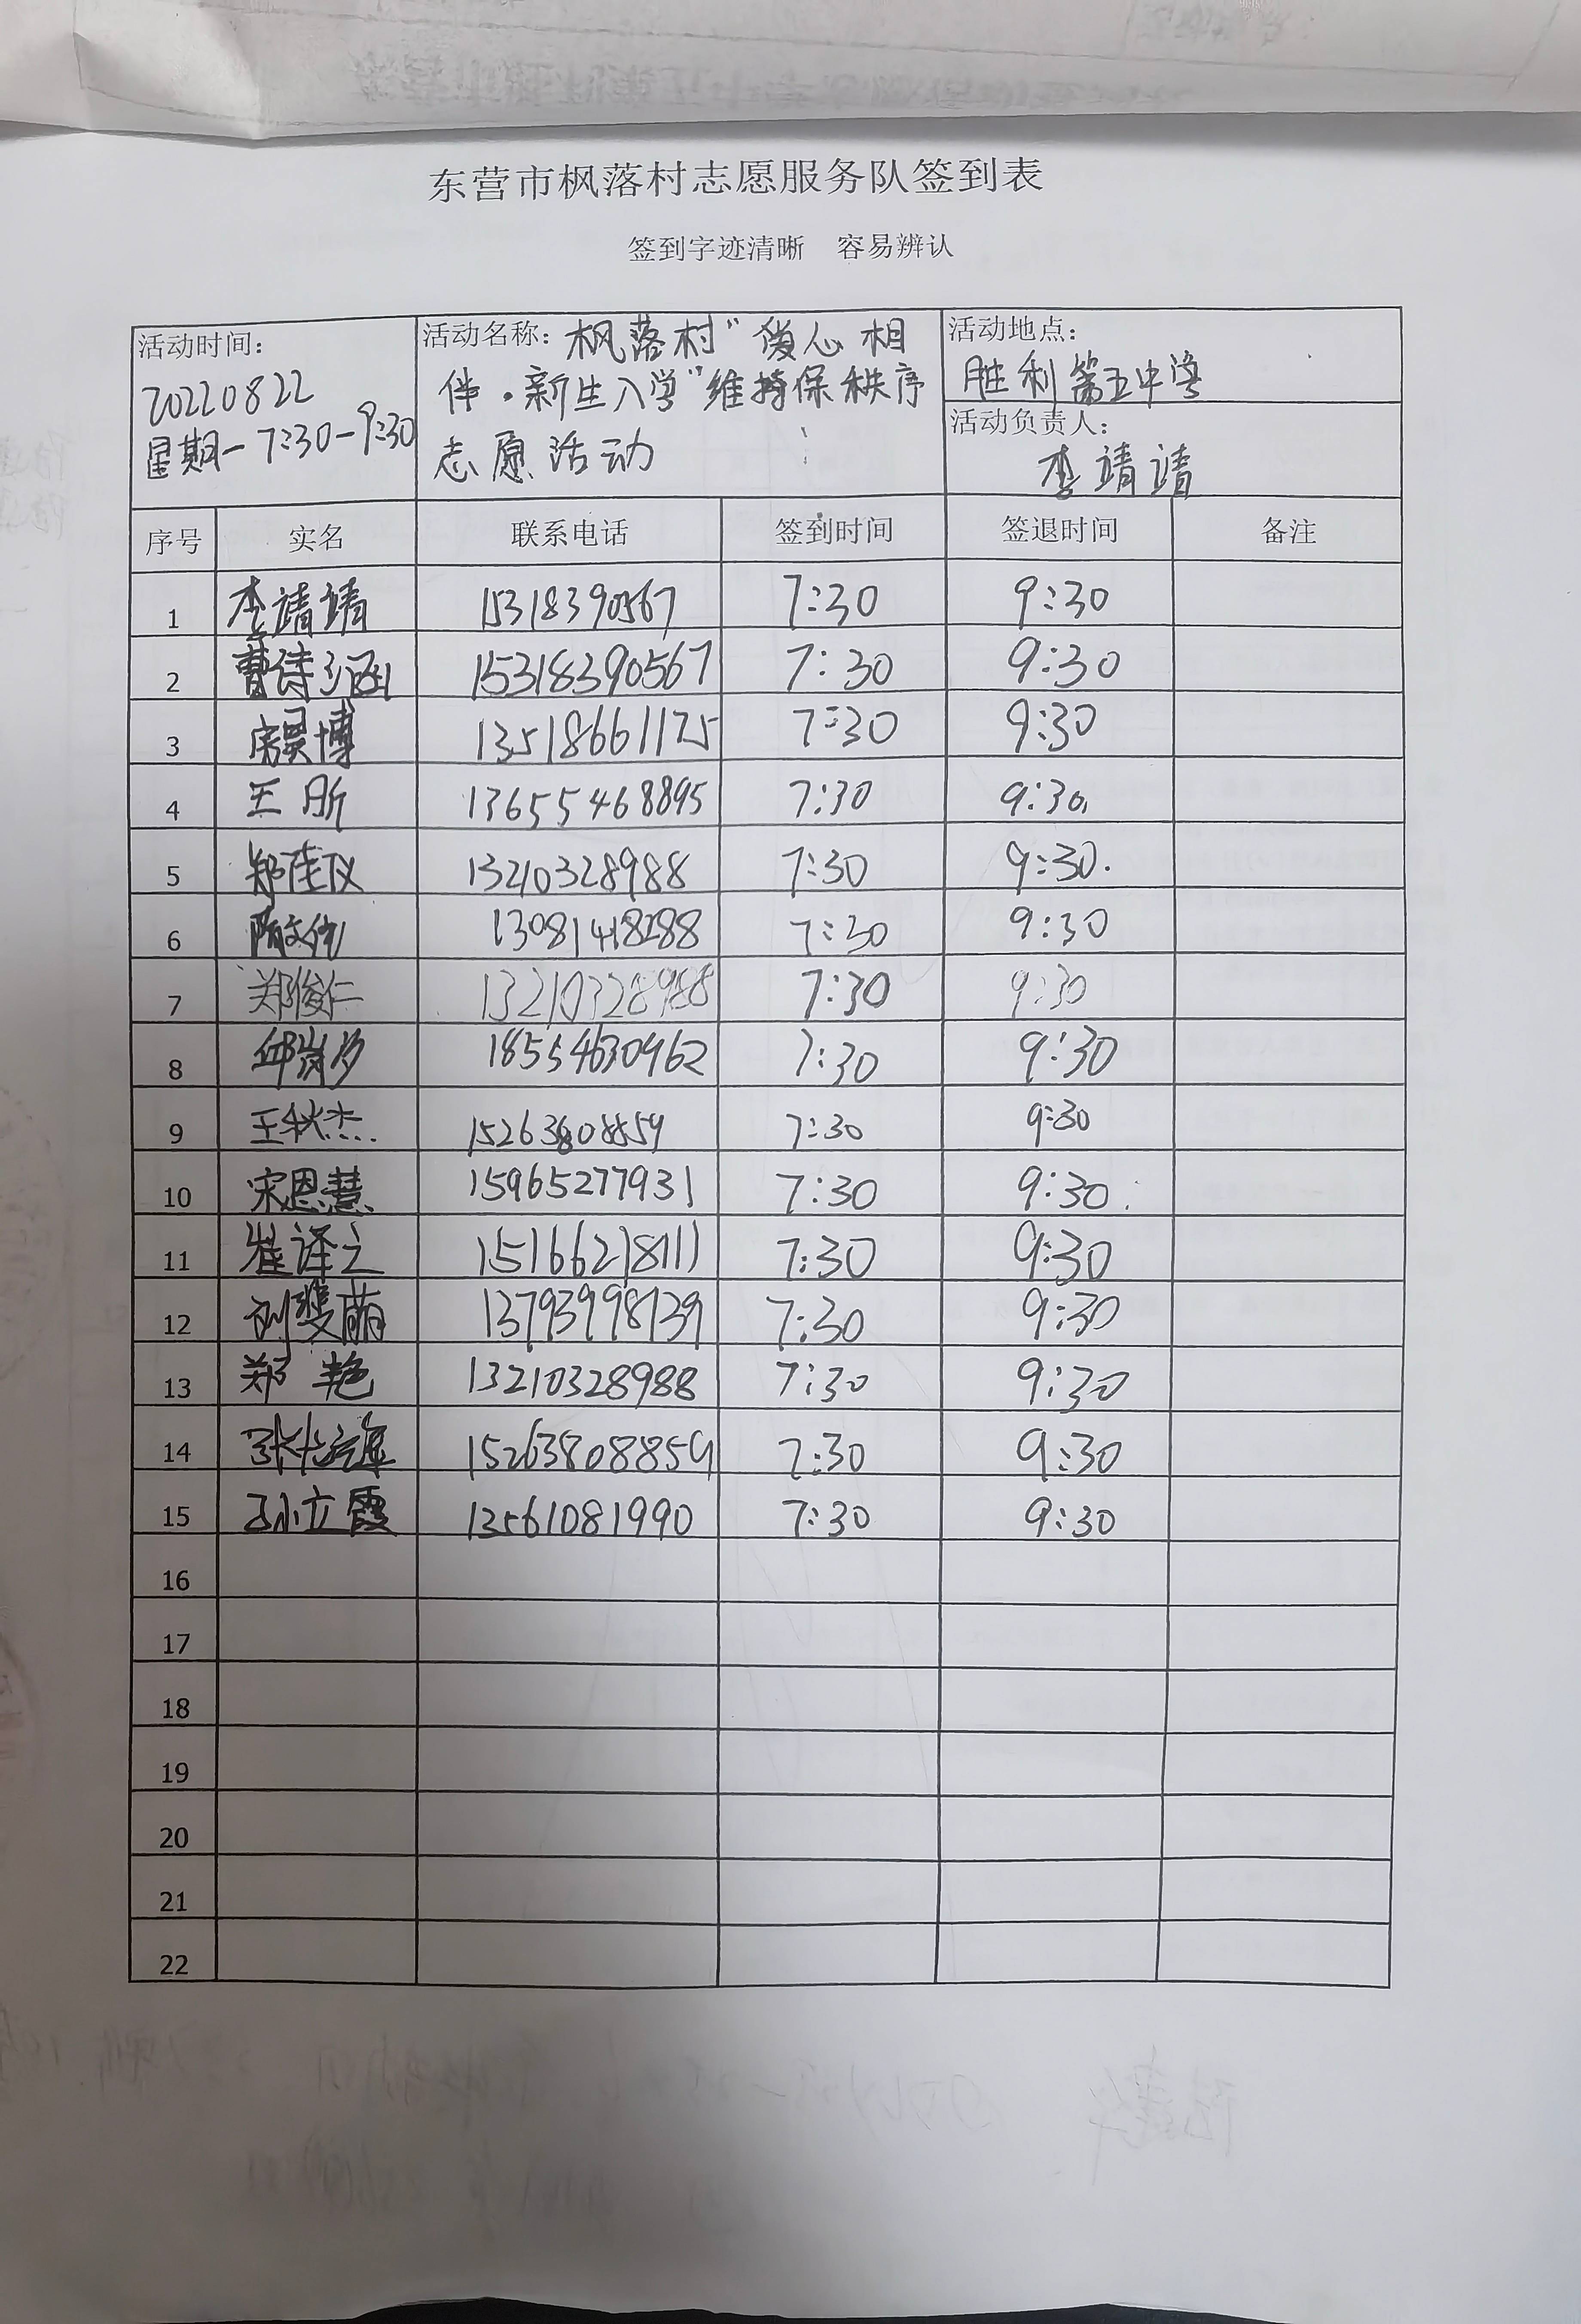 东营市枫落村志愿服务队签到表
签到字迹清晰 容易辨认
活动时间:
20220822
星期一 7:30-9:30
活动名称: 枫落村"爱心相
伴·新生入学"维持保秩序
志愿活动
活动地点:
胜利第五中学
活动负责人:
李靖靖
序号 实名 联系电话 签到时间 签退时间 备注
1 李靖靖 15318390567 7:30 9:30
2 曹诗涵 15318390567 7:30 9:30
3 房昊博 13518661175 7:30 9:30
4 王昕 13655468895 7:30 9:30
5 郑佳仪 13210328988 7:30 9:30
6 隋文优 7:30 9:30
7 郑俊仁 13210328988 7:30 9:30
8 邱岚汐 18554630962 7:30 9:30
9 王秋杰 15263808859 7:30 9:30
10 宋恩慧 15965277931 7:30 9:30
11 崔译之 15166218111 7:30 9:30
12 刘斐萌 13793998139 7:30 9:30
13 郑艳 13210328988 7:30 9:30
14 15263808859 7:30 9:30
15 孙立霞 13561081990 7:30 9:30
16
17
18
19
20
21
22